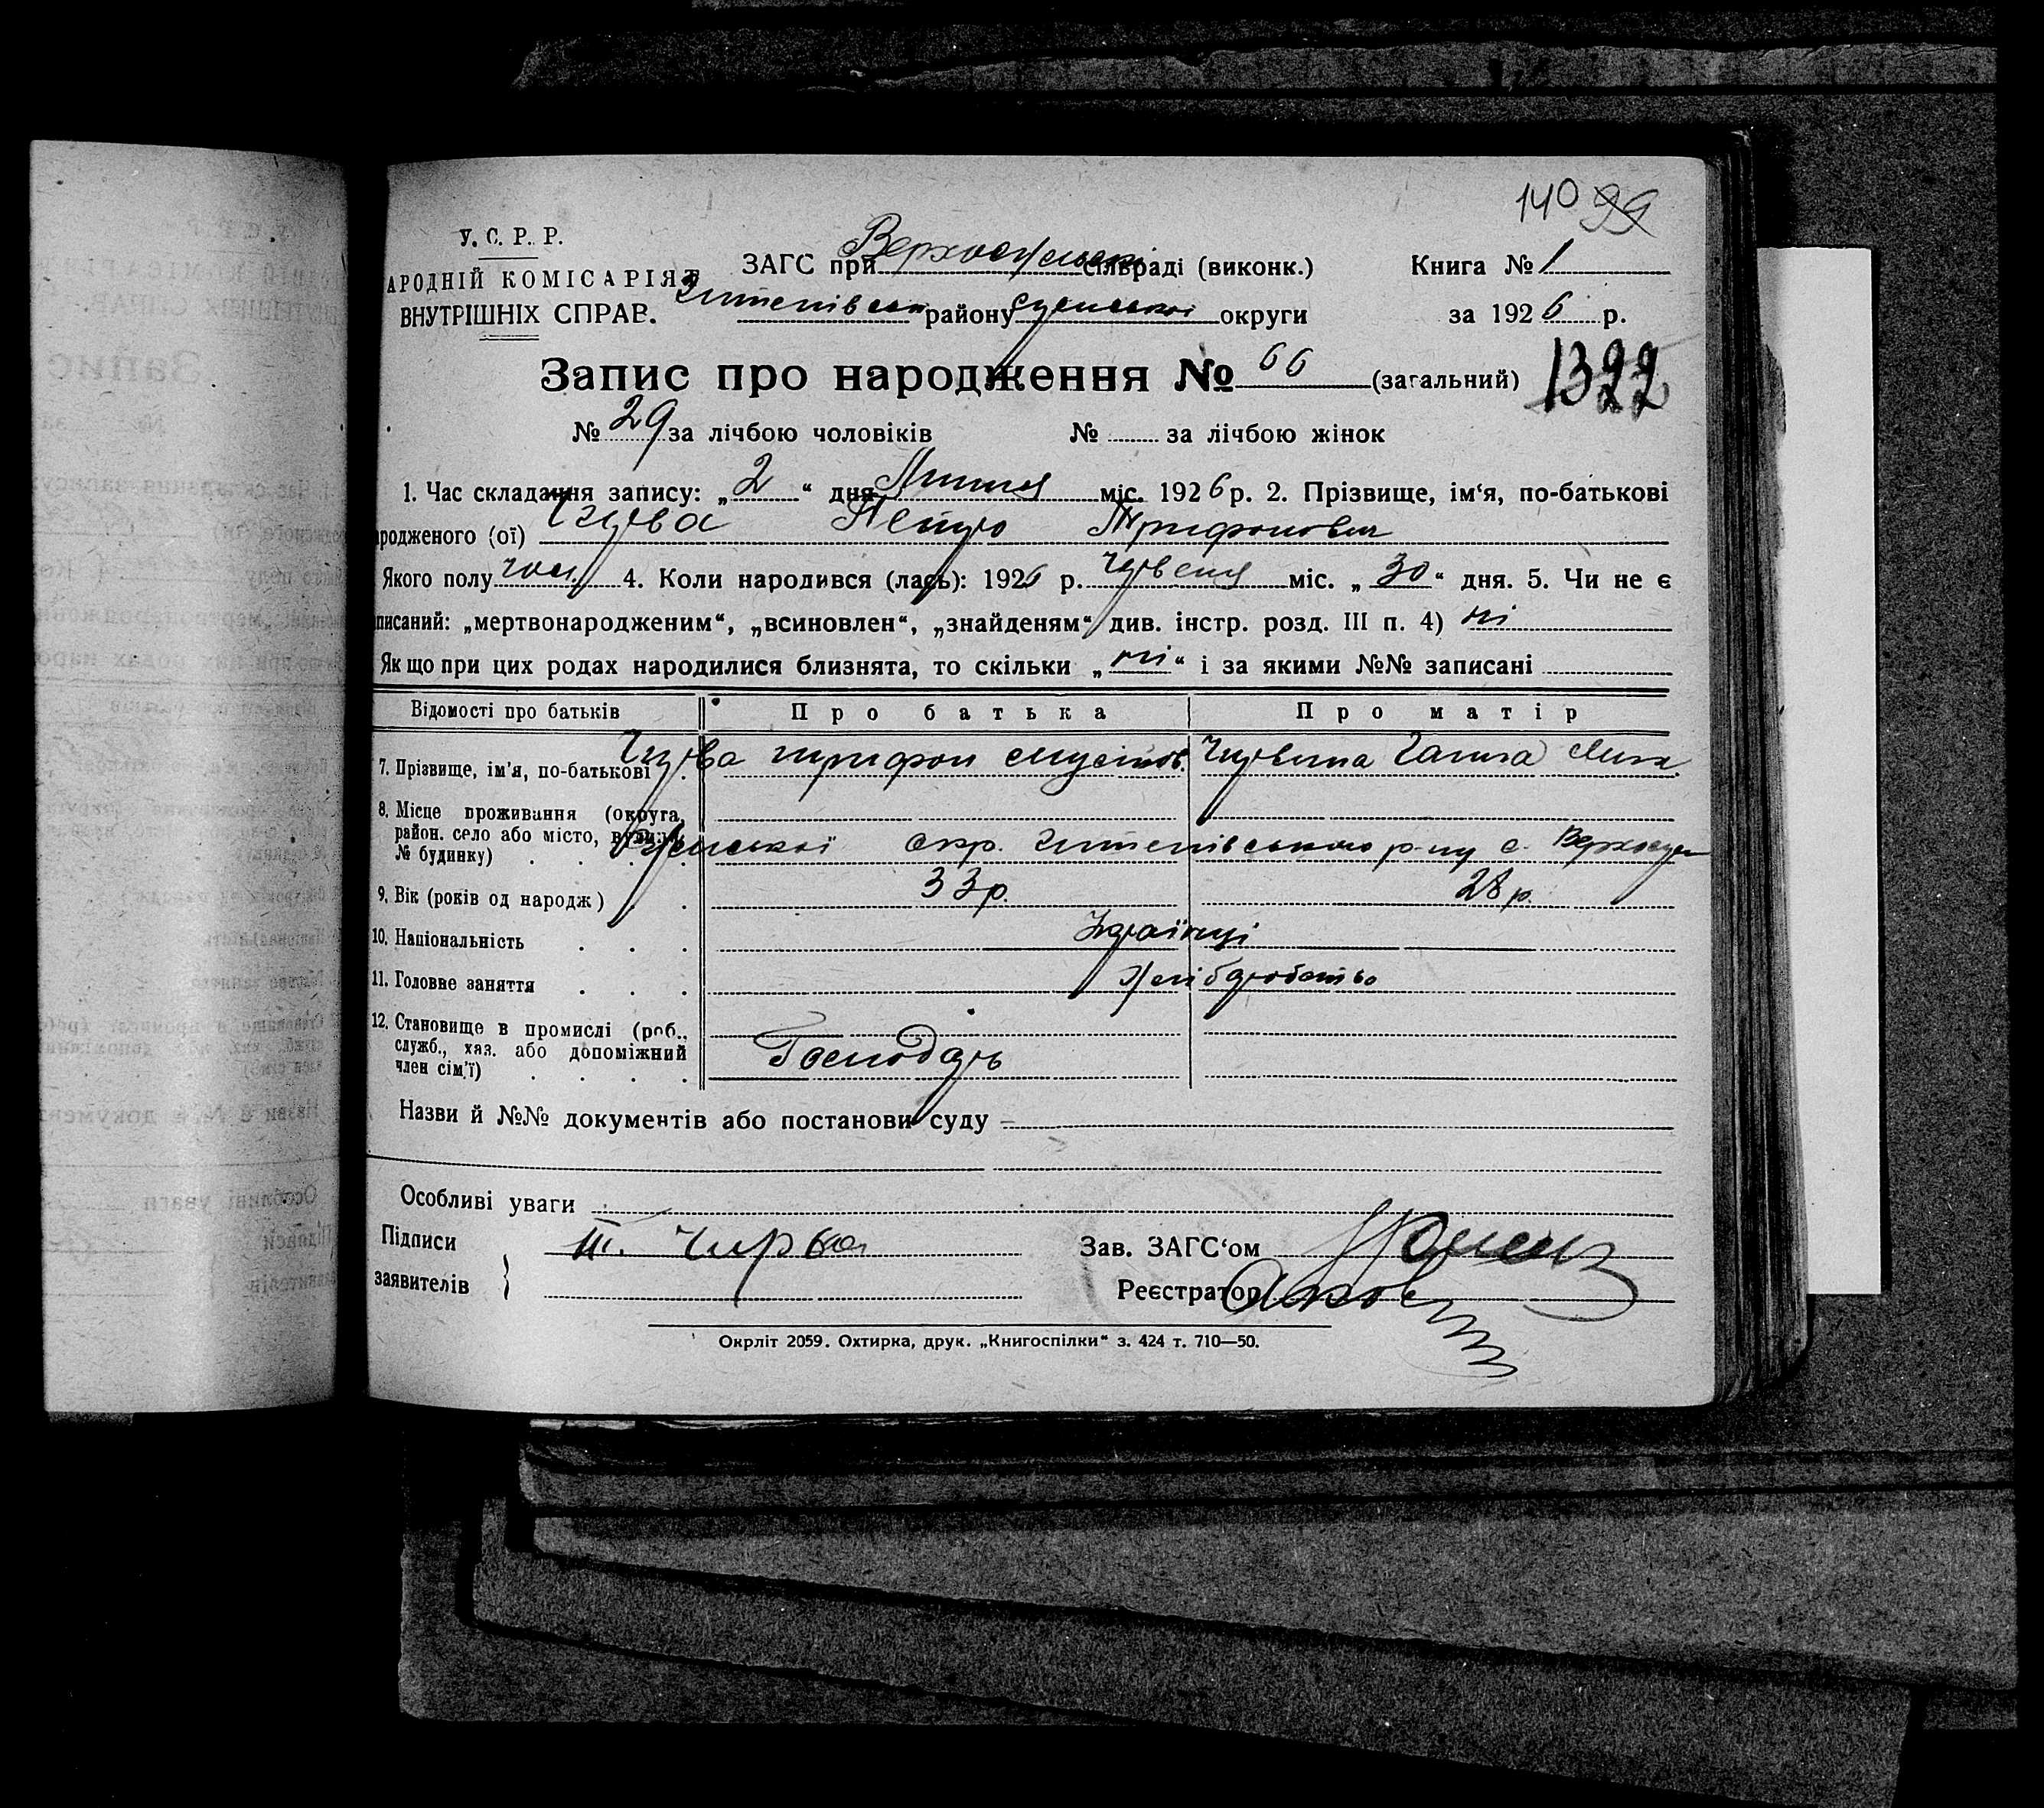 140 99
У. С. Р. Р.
АРОДНІЙ КОМІСАРІЯТ
ВНУТРІШНІХ СПРАВ.
ЗАГС при Верхосульській сільраді (виконк.)
Книга № 1
Штепівськ району Сумської округи
за 1926 р.
Запис про народження № 66 (загальний) 1322
№ 29 за лічбою чоловіків № за лічбою жінок
1. Час складання запису: „2“ дня Липня міс. 1926 р. 2. Прізвище, ім‘я, по-батькові
родженого (ої) Чирва Петро Трифонович
Якого полу чол. 4. Коли народився (лась): 1926 р. Червеня міс. „30“ дня. 5. Чи не є
писаний: „мертвонародженим“, „всиновлен“, „знайденям“ див. інстр. розд. III п. 4) ні
Якщо при цих родах народилися близнята, то скільки „ні“ і за якими №№ записані
Відомості про батьків Про батька Про матір
7. Прізвище, ім'я, по-батькові Чирва Трифон Чирвина Ганна Мих.
8. Місце проживання (округа,
район. село або місто, вулиця,
№ будинку) Сумської окр. Штепівського р-ну с. Верхосула
9. Вік (років од народж) 33 р. 28 р.
10. Національність Українці
11. Головне заняття Хліборобство
12. Становище в промислі (роб.,
служб., хаз. або допоміжний
член сім'ї) Господарь
Назви й №№ документів або постанови суду –
Особливі уваги
Підписи
заявителів
Т. Чирва
Зав. ЗАГС‘ом
Реєстратор
Окрліт 2059. Охтирка, друк. „Книгоспілки“ з. 424 т. 710—50.